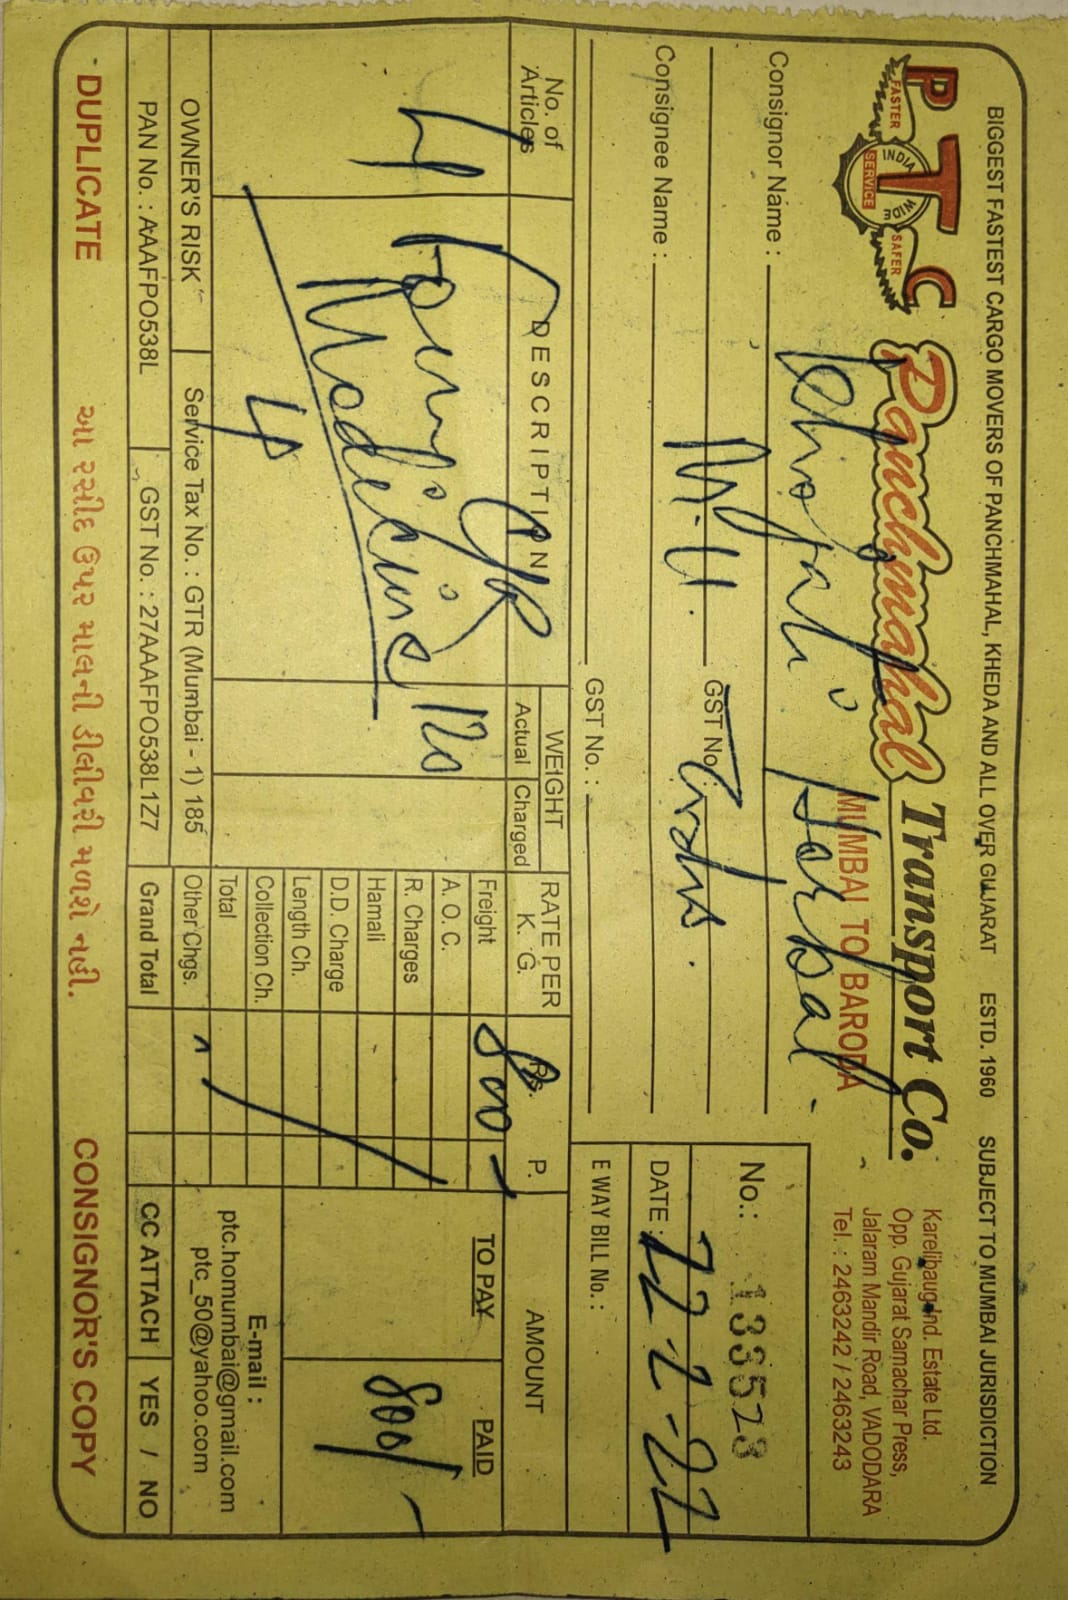 BIGGEST FASTEST CARGO MOVERS OF PANCHMAHAL, KHEDA AND ALL OVER GUJARAT ESTD. 1960 SUBJECT TO MUMBAI JURISDICTION
PTC
FASTER INDIA WIDE SERVICE SAFER
Panchmahal Transport Co.
MUMBAI TO BARODA
Karelibaug Ind. Estate Ltd.
Opp. Gujarat Samachar Press,
Jalaram Mandir Road, VADODARA
Tel. : 2463242 / 2463243
Consignor Name : Herbal.
GST No.:
No.: 133523
Consignee Name : M.H.
GST No. :
DATE : 22-2-22
E WAY BILL No. :
No. of Articles
DESCRIPTION
WEIGHT
Actual Charged
RATE PER K. G.
Rs. P.
AMOUNT
TO PAY PAID
4
Four C/B
Medicins
120
4
Freight 800 -
A. O. C.
R. Charges
Hamali
D.D. Charge
Length Ch.
Collection Ch.
Total
Other Chgs.
Grand Total
800/-
OWNER'S RISK
Service Tax No. : GTR (Mumbai - 1) 185
E-mail :
ptc.homumbai@gmail.com
ptc_50@yahoo.com
PAN No. : AAAFPO538L
GST No. : 27AAAFPO538L1Z7
CC ATTACH YES / NO
DUPLICATE
આ રસીદ ઉપર માલની ડીલીવરી મળશે નહી.
CONSIGNOR'S COPY